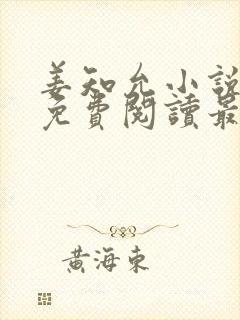 姜知允小說
免費閱讀最
黃海東